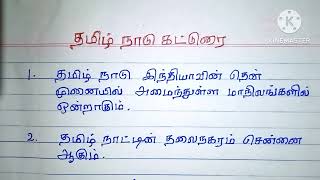 தமிழ் நாடு கட்டுரை
KINEMASTER
1. தமிழ் நாடு இந்தியாவின் தென்
முனையில் அமைந்துள்ள மாநிலங்களில்
ஒன்றாகும்.
2. தமிழ் நாட்டின் தலைநகரம் சென்னை
ஆகும்.